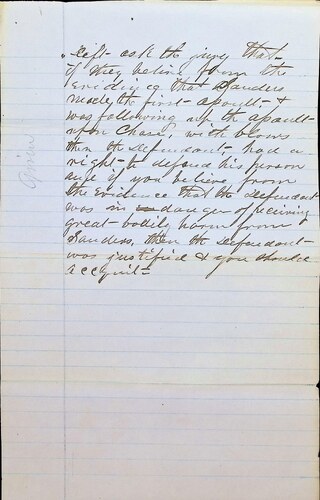 Deft- ask the jury that-
if they believe from the
Evidence that Sanders
made the first- assault- &
was following up the assault-
upon Chas. with blows
then the defendant- had a
right- to defend his person
and if you believe from
the Evidence that the defendant
was in danger of receiving
great- bodily harm from
Sanders, then the Defendant-
was justified & you should
acquit-
Given